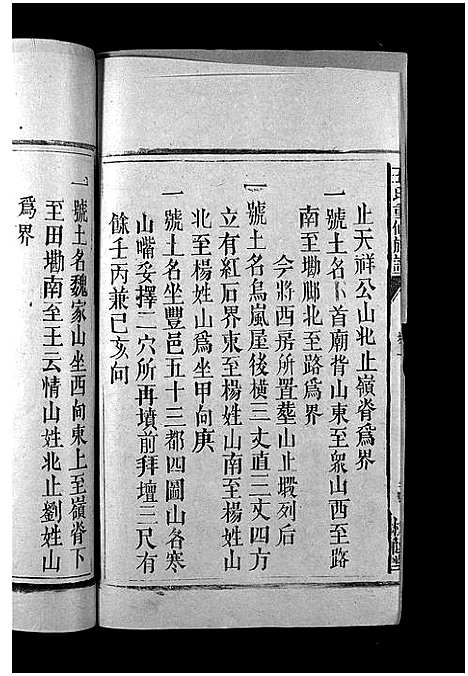 止天祥公山北止嶺脊爲界
一號土名下首廟背山東至衆山西至路
南至墈脚北至路爲界
今將西房所置塟山止塅列后
一號土名烏嵐屋後橫三丈直二丈四方
立有紅石界東至楊姓山南至楊姓山
北至楊姓山爲坐甲向庚
一號土名坐豐邑五十三都四圖山名寒
山嘴妥擇二穴所再墳前拜壇三尺有
餘壬丙兼巳亥向
一號土名魏家山坐西向東上至嶺脊下
至田墈南至王云情山姓北止劉姓山
爲界